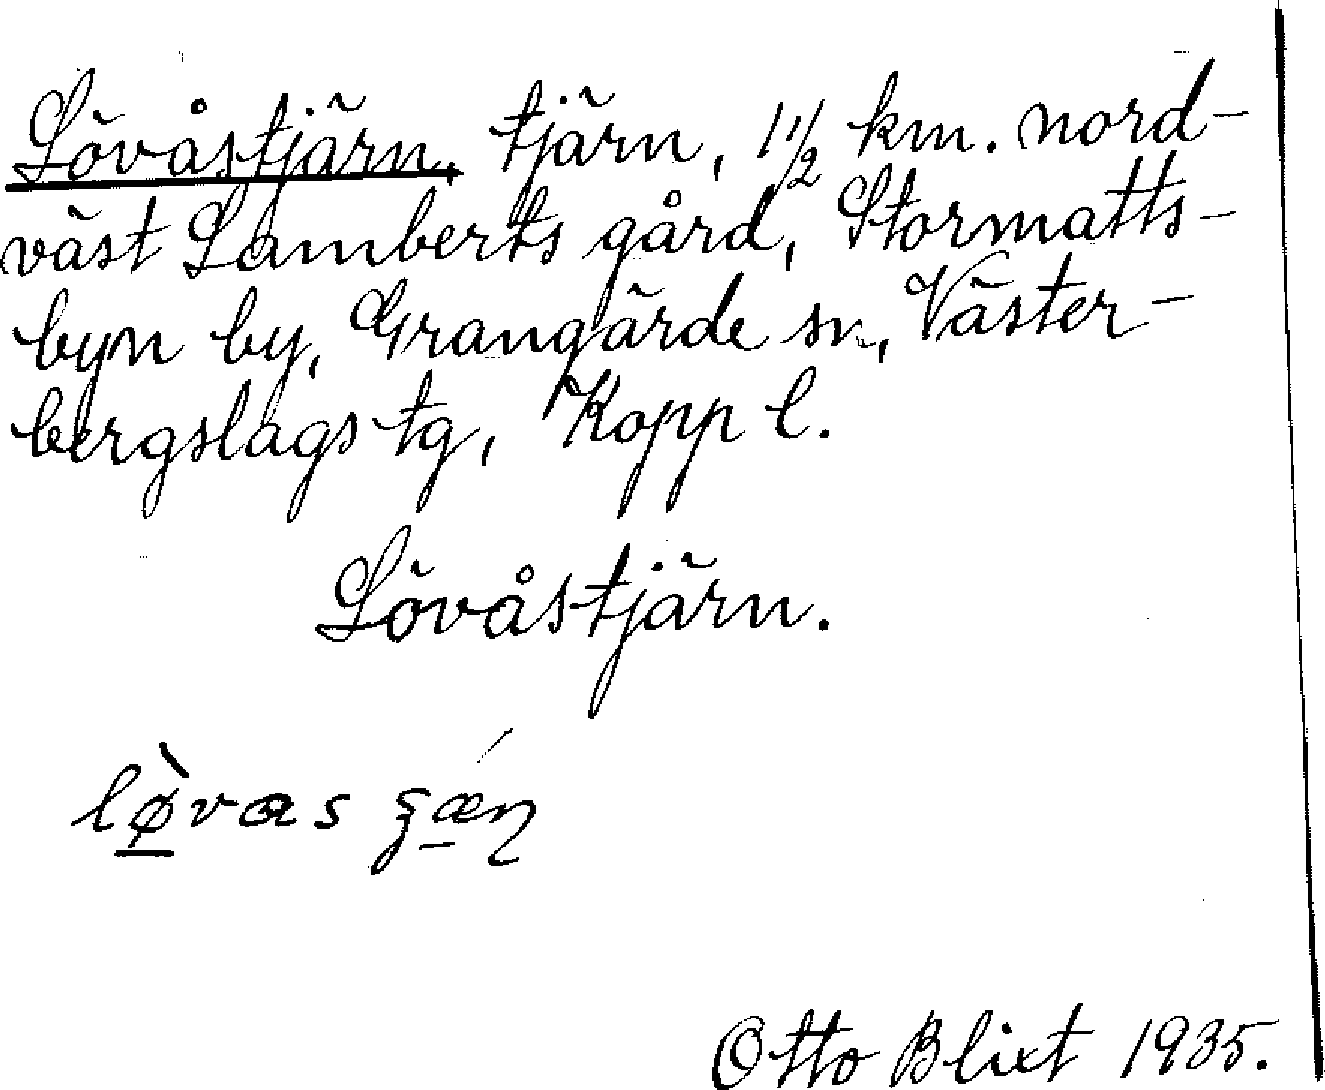 Lövåstjärn, tjärn, 1 1/2 km. nord-
väst Lamberts gård, Stormatts-
byn by, Grangärde sn, Väster-
bergslags tg, Kopp l.
Lövåstjärn.
Otto Blixt 1935.